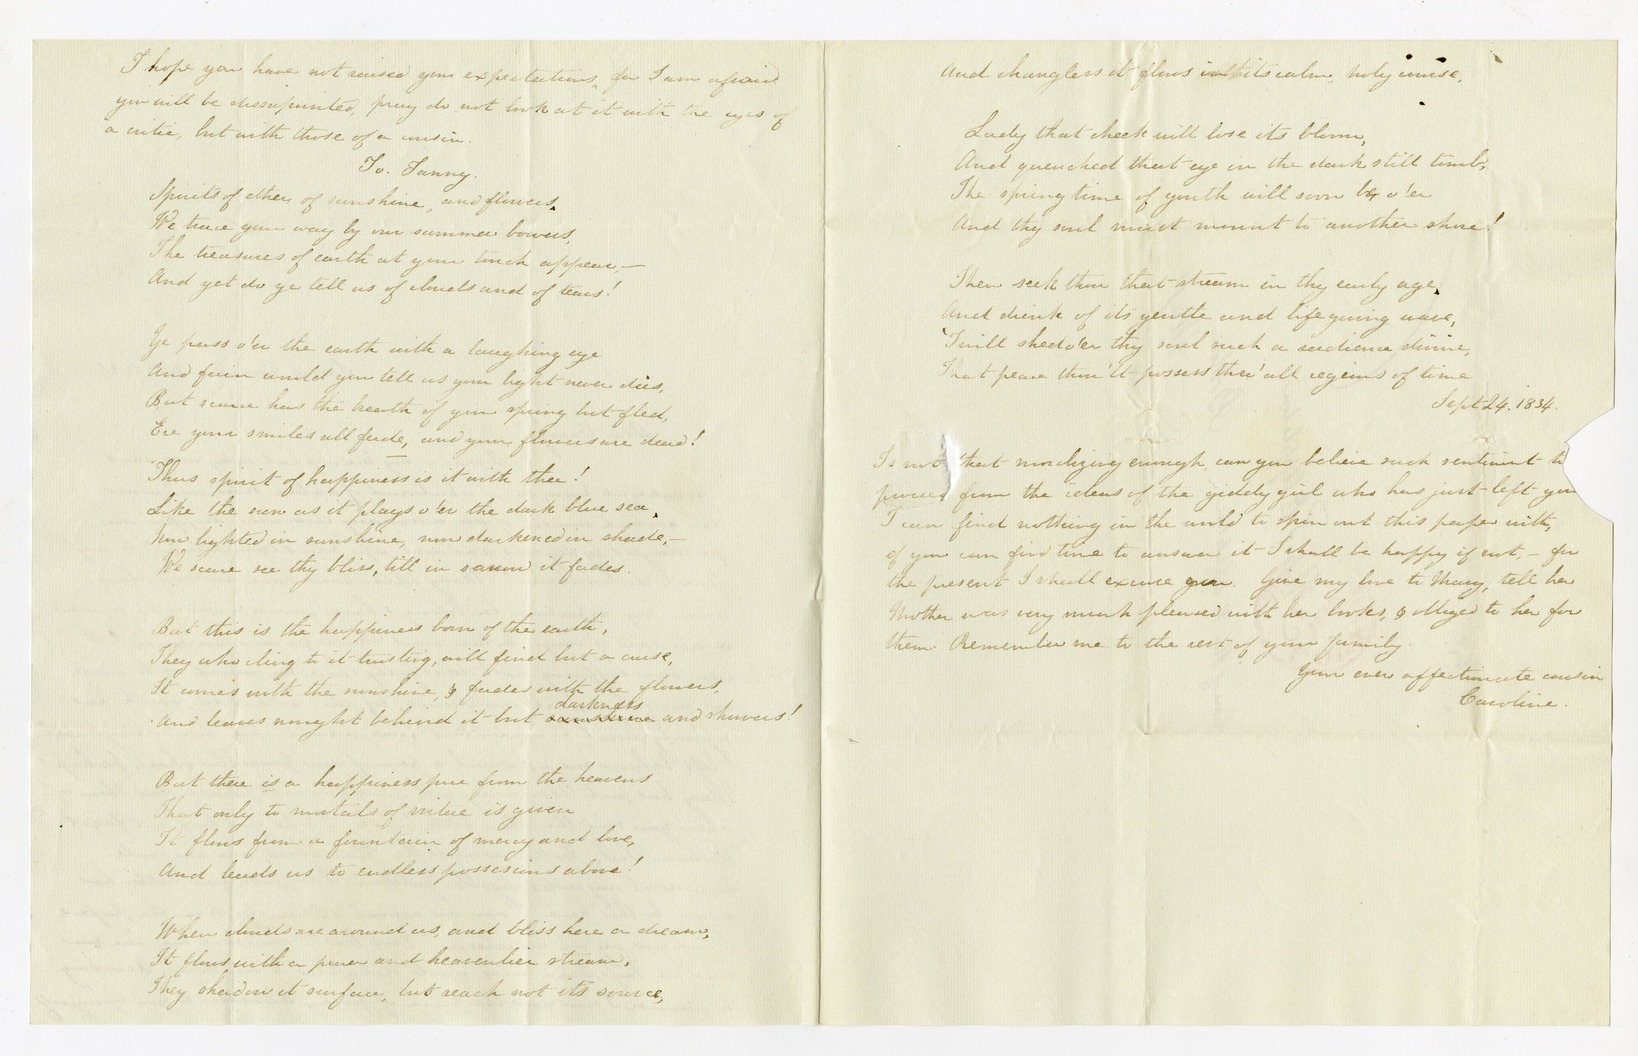 I hope you have not raised your expectations, for I am afraid
you will be dissapointed, pray do not look at it with the eyes of
a critic, but with those of a cousin.
To. Fanny.
Spirits of ether, of sunshine, and flowers,
We trace your way by our summer bowers,
The treasures of earth at your touch appear,—
And yet do ye tell us of clouds and of tears!
Ye pass o'er the earth with a laughing eye
And fain would you tell us your light never dies,
But scarce has the breath of your spring but fled,
Ere your smiles all fade, and your flowers are dead!
Thus spirit of happiness is it with thee!
Like the sun as it plays o'er the dark blue sea,
Now lighted in sunshine, now darkened in shade,—
We scarce see thy bliss, till in sorrow it fades.
But this is the happiness born of the earth,
They who cling to it trusting, will find but a curse,
It comes with the sunshine, & fades with the flowers,
darkness
And leaves nought behind it but sunshine and showers!
But there is a happiness pure from the heavens
That only to mortals of virtue is given
It flows from a fountain of mercy and love,
And leads us to endless possesions above!
When clouds are around us, and bliss here a dream,
It flows with a purer and heavenlier stream,
They shadow it surface, but reach not its source,
And changless it flows in its calm, holy course.
Lady that cheek will lose its bloom,
And quenched that eye in the dark still tomb,
The spring time of youth will soon be o'er
And thy soul must mount to another shore!
Then seek thou that stream in thy early age,
And drink of its gentle and life giving wave,
'Twill shed o'er thy soul such a radience divine,
That peace thou'lt possess thro' all regions of time
Sept 24. 1834.
Is not that moralizing enough, can you believe such sentiment to
proceed from the ideas of the giddy girl who has just left you
I can find nothing in the world to spin out this paper with,
if you can find time to answer it I shall be happy if not,— for
the present I shall excuse you. Give my love to Mary, tell her
Mother was very much pleased with her books, & obliged to her for
them. Remember me to the rest of your family.
Your ever affectionate cousin
Caroline.